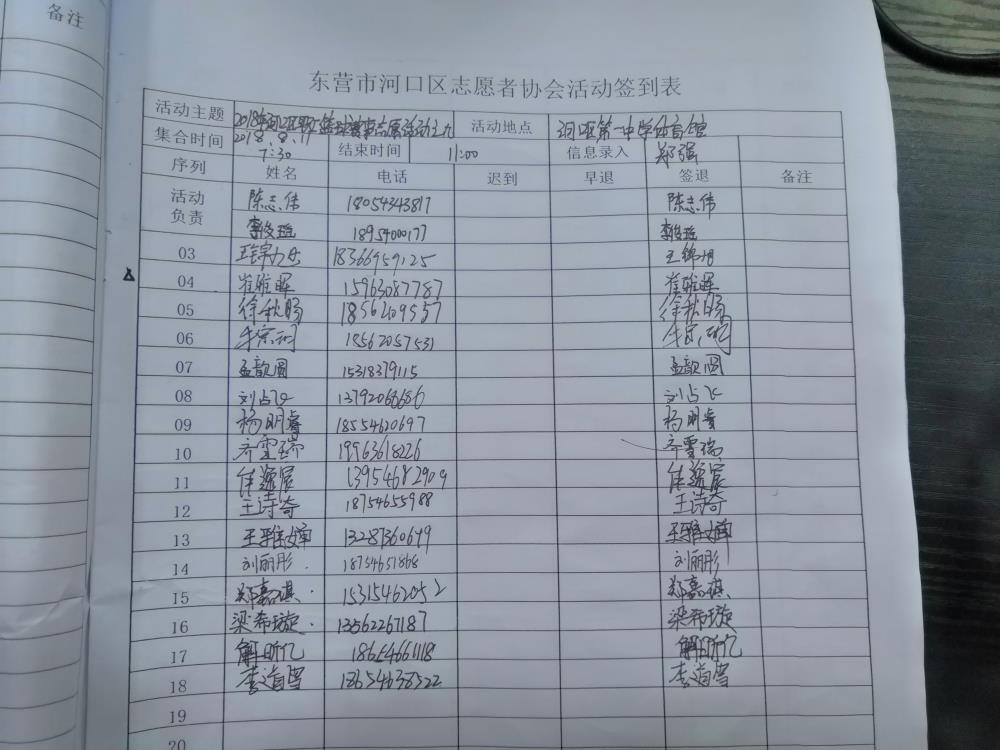 备注
东营市河口区志愿者协会活动签到表
活动主题 2018年河口区职工篮球赛事志愿活动之九 活动地点 河口区第一中学体育馆
集合时间 2018.8.11 7:30 结束时间 11:00 信息录入 郑强
序列 姓名 电话 迟到 早退 签退 备注
活动负责 陈志伟 18054343817 陈志伟
李俊瑶 18954000177 李俊瑶
03 18366959125
04 崔雅晖 15963087787 崔雅晖
05 徐秋旸 18562109557 徐秋旸
06 18562057531
07 孟歆圆 15318379115 孟歆圆
08 刘占飞 13792066686 刘占飞
09 杨明睿 18554620697 杨明睿
10 齐雪瑞 19963618226 齐雪瑞
11 13954682909
12 王诗奇 18754655988 王诗奇
13 王雅婵 13287360649 王雅婵
14 刘丽彤 18754651868 刘丽彤
15 郑嘉祺 15315462052 郑嘉祺
16 梁希璇 13562267187 梁希璇
17 解昕亿 18654661118 解昕亿
18 李道雪 18654638322 李道雪
19
20